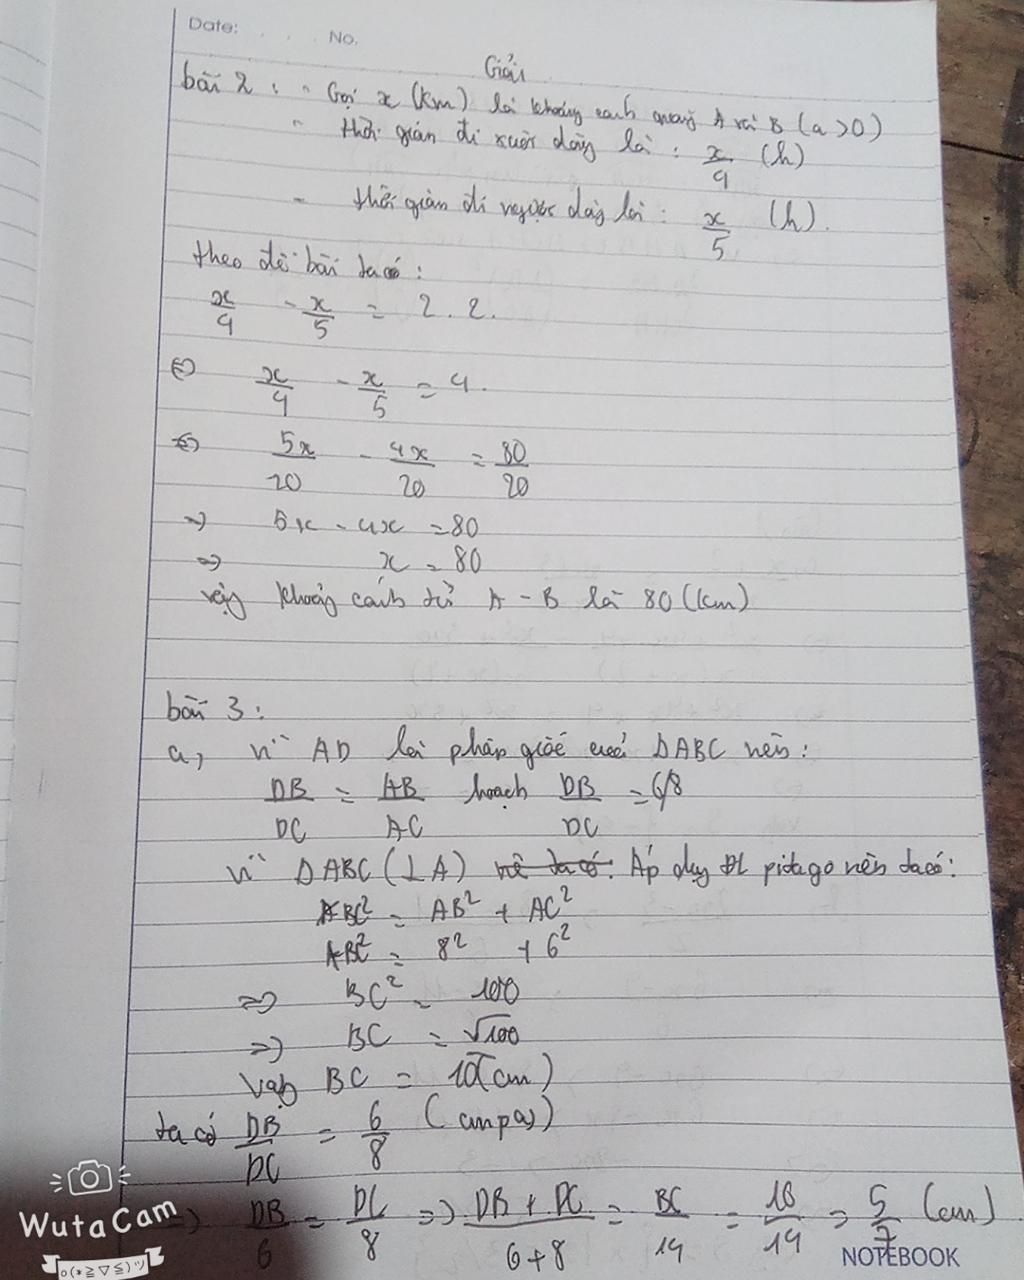 Date: . . . No.
Giải
bài 2: " Gọi x (km) là khoảng canh quang A và B (a>0)
" thời gian đi xuôi dòng là: x/4 (h)
- thời gian đi ngược dòng là: x/5 (h).
theo đề bài ta có:
x/4 - x/5 = 2.2.
<=> x/4 - x/5 = 4.
<=> 5x/20 - 4x/20 = 80/20
=> 5x - 4x = 80
=> x = 80
vậy khoảng cánh từ A - B là 80 (km)
bài 3:
a, vì AD là phân giác của ΔABC nên:
DB/DC = AB/AC hoạch DB/DC = 6/8
vì ΔABC (⊥A) Áp dụng ĐL pitago nên ta có:
BC² = AB² + AC²
BC² = 8² + 6²
=> BC² = 100
=> BC = √100
Vậy BC = 10 (cm)
ta có DB/DC = 6/8 (cmpa)
=> DB/6 = DC/8 => DB + DC/6+8 = BC/14 = 10/14 = 5/7 (cm)
WutaCam
o(*≧▽≦)ツ
NOTEBOOK